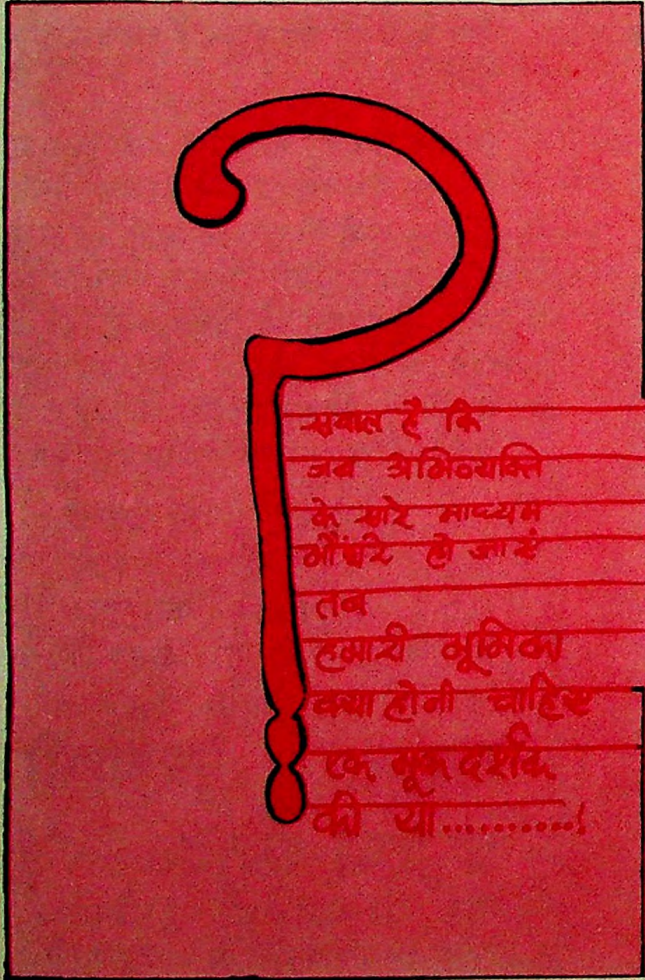 सवाल है कि
जब अभिव्यक्ति
के सारे माध्यम
भौंथरे हो जाएं
तब
हमारी भूमिका
क्या होनी चाहिए
एक मूक दर्शक
की या..........!